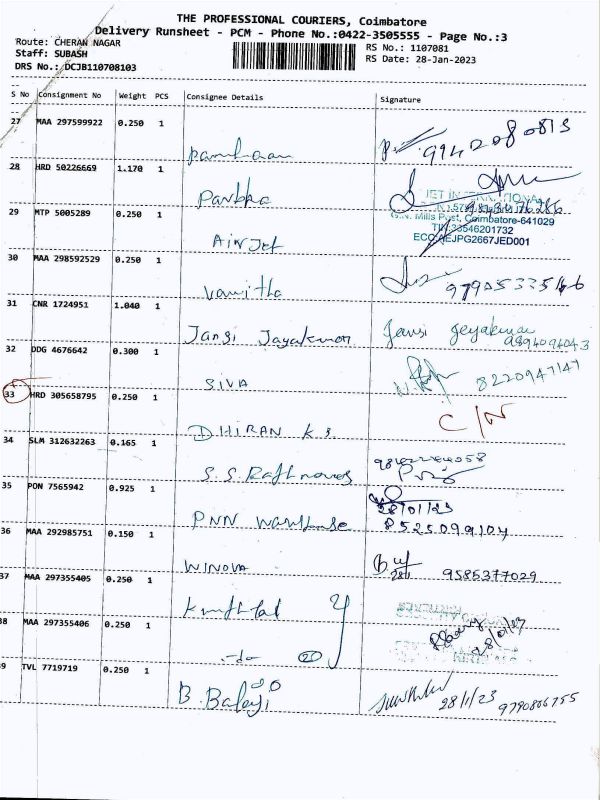 THE PROFESSIONAL COURIERS, Coimbatore
Delivery Runsheet - PCM - Phone No.:0422-3505555 - Page No.:3
Route: CHERAN NAGAR RS No.: 1107081
Staff: SUBASH RS Date: 28-Jan-2023
DRS No.: DCJB110708103
S No Consignment No Weight PCS Consignee Details Signature
27 MAA 297599922 0.250 1
9942080813
28 HRD 50226669 1.170 1
Parbhu
JET INTERNATIONAL
29 MTP 5005289 0.250 1
G.N. Mills Post, Coimbatore-641029
TIN:33546201732
Airjet ECC:AEJPG2667JED001
30 MAA 298592529 0.250 1
Vanitha 9790533546
31 CNR 1724951 1.040 1
Jansi Jayakumar Jansi Jeyakumar
32 DDG 4676642 0.300 1
SIVA 8220947147
33 HRD 305658795 0.250 1
C/N
DHIRAN K.S
34 SLM 312632263 0.165 1
S.S.
35 PON 7565942 0.925 1
28/01/23
PNN 8525099104
36 MAA 292985751 0.150 1
WINOVA 28/1 9585377029
37 MAA 297355405 0.250 1
38 MAA 297355406 0.250 1
28/01/23
-do-
39 TVL 7719719 0.250 1
B. Balaji 28/1/23 9790866755